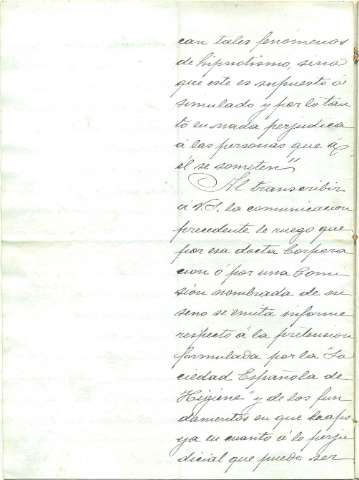 can tales fenómenos
de hipnotismo, sino
que este es supuesto ó
simulado y por lo tan
to en nada perjudica
á las personas que á
él se someten"
Al transcribir
a V.S. la comunicacion
precedente le ruego que
por esa docta Corpora
cion ó por una Comi
sión nombrada de su
seno se emita informe
respecto á la pretension
formulada por la "So
ciedad Española de
Higiene" y de los fun
damentos en que la apo
ya en cuanto á lo perju
dicial que pueda ser